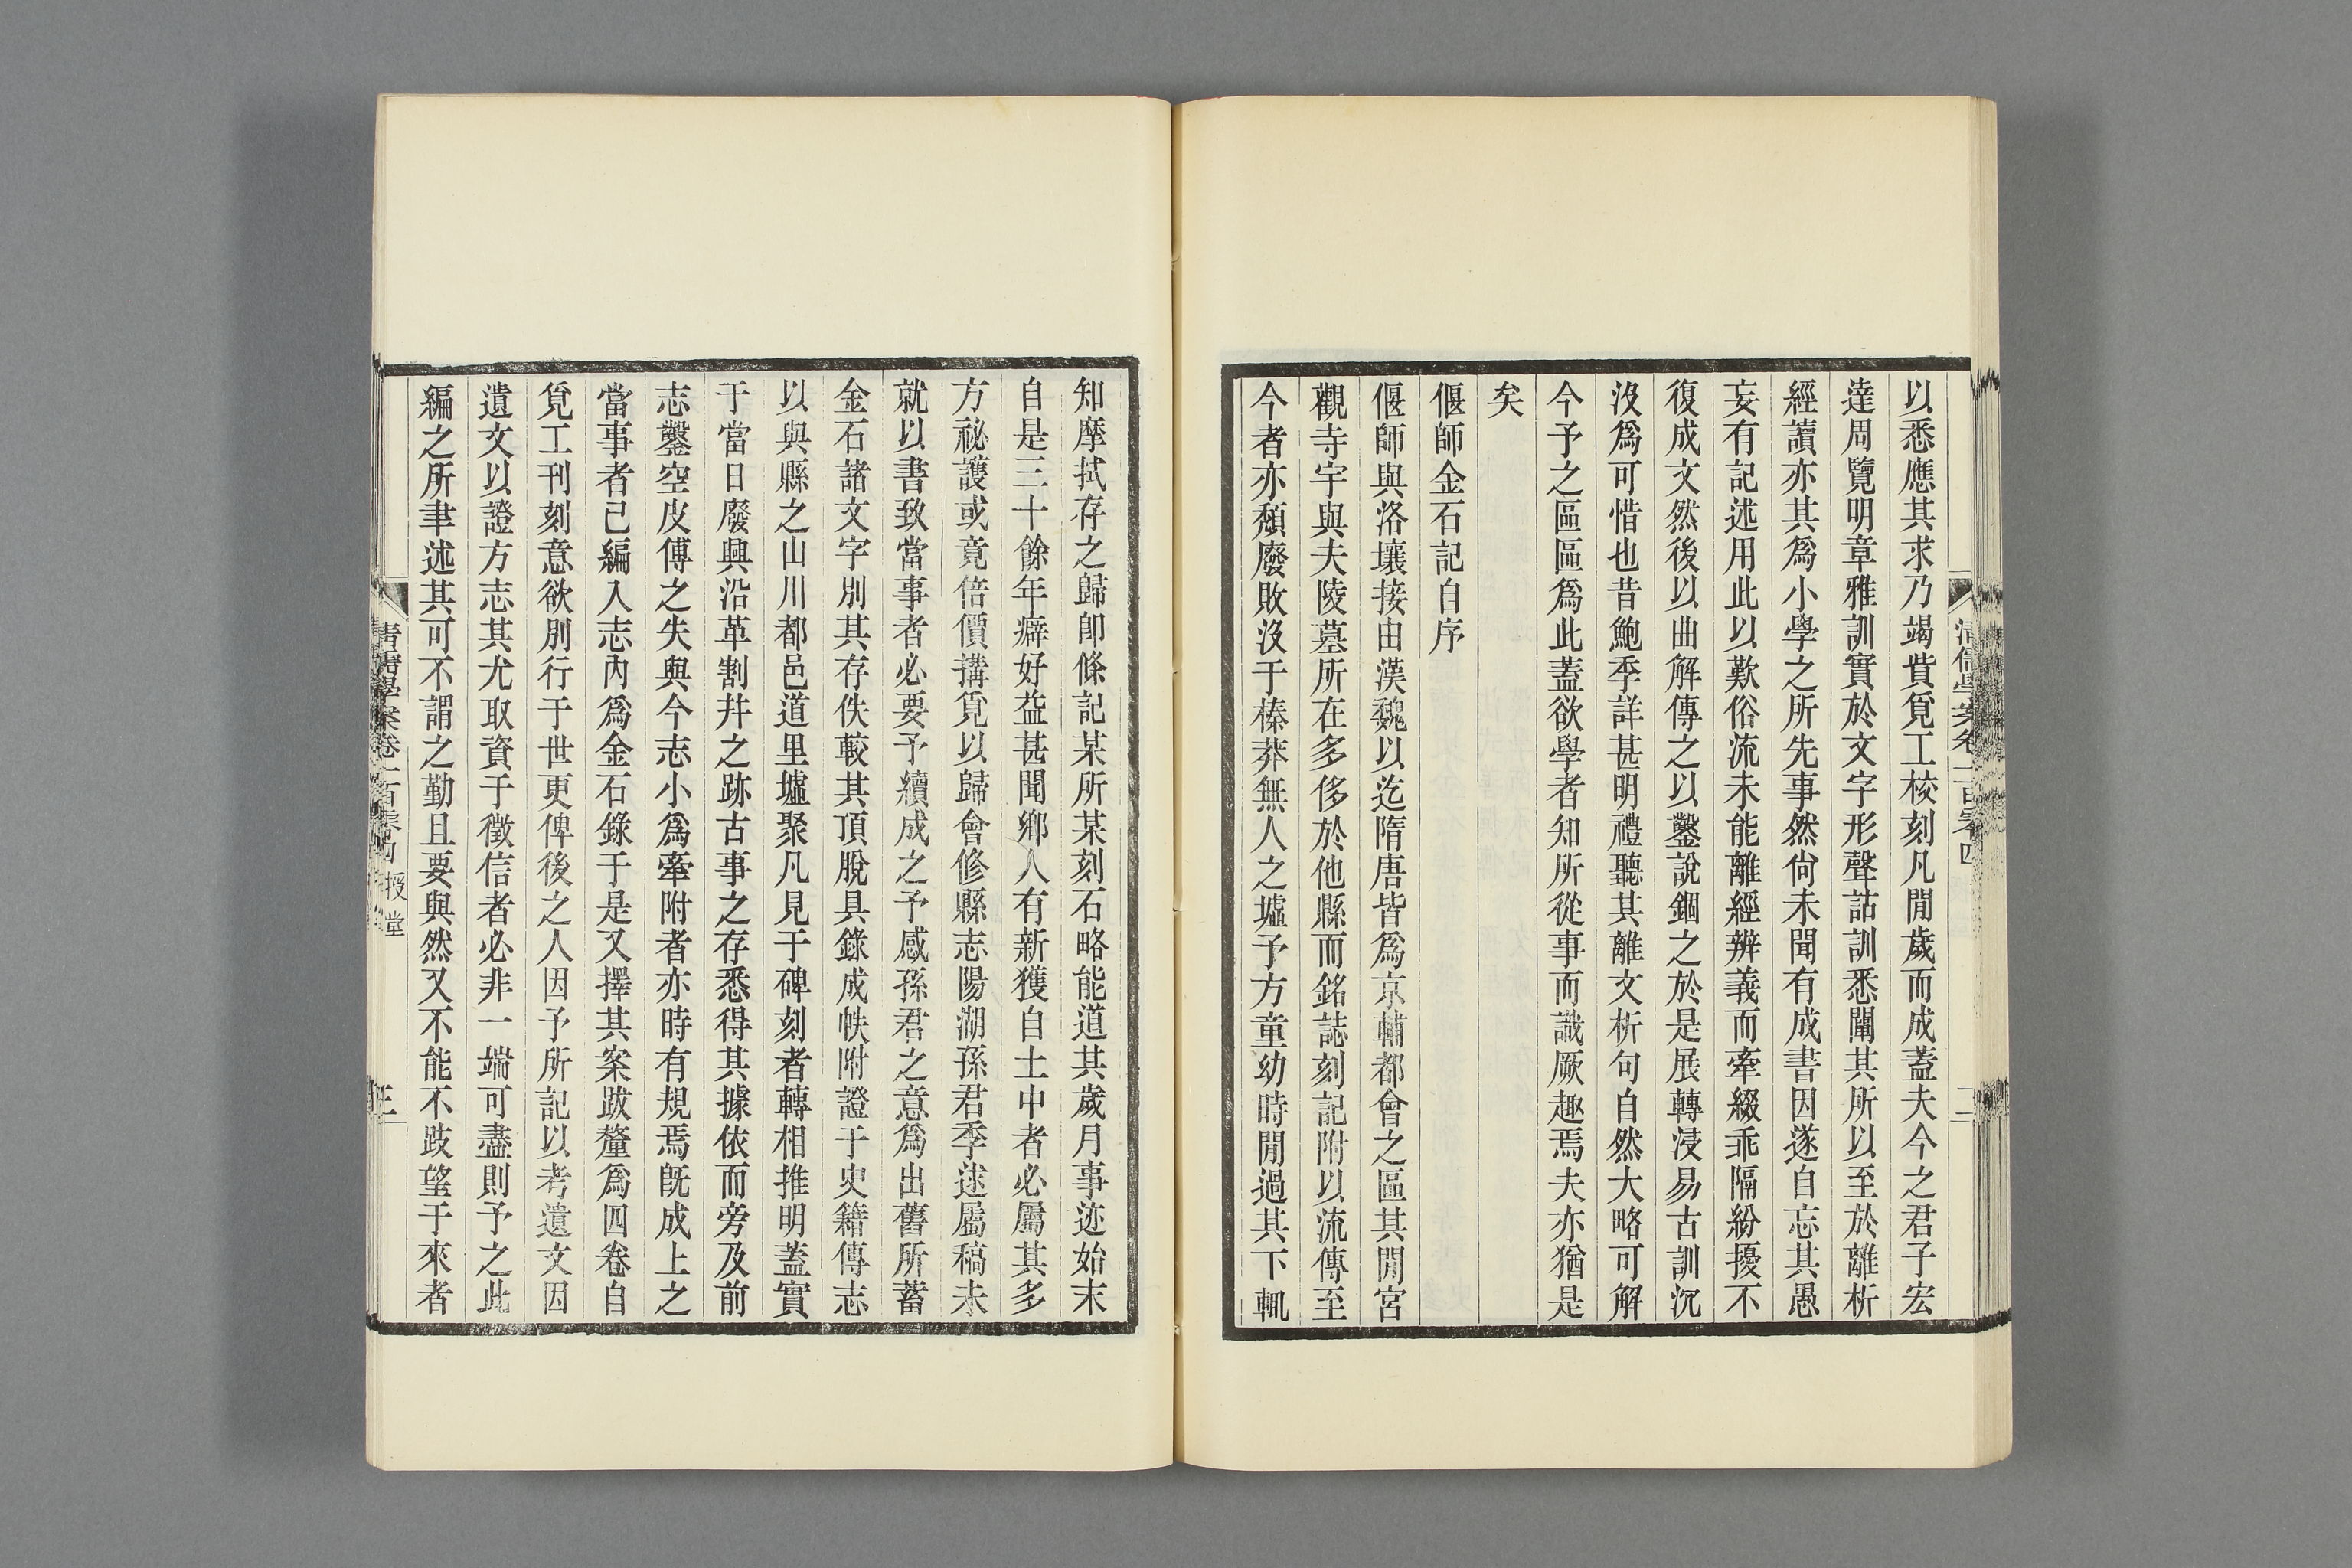 以悉應其求乃竭貲覓工校刻凡閒歲而成蓋夫今之君子宏
達周覽明章雅訓實於文字形聲詁訓悉闡其所以至於離析
經讀亦其爲小學之所先事然尙未聞有成書因遂自忘其愚
妄有記述用此以歎俗流未能離經辨義而牽綴乖隔紛擾不
復成文然後以曲解傳之以鑿說錮之於是展轉浸易古訓沉
沒爲可惜也昔鮑季詳甚明禮聽其離文析句自然大略可解
今予之區區爲此蓋欲學者知所從事而識厥趣焉夫亦猶是
矣
偃師金石記自序
偃師與洛壤接由漢魏以迄隋唐皆爲京輔都會之區其閒宮
觀寺宇與夫陵墓所在多侈於他縣而銘誌刻記附以流傳至
今者亦頹廢敗沒于榛莽無人之墟予方童幼時閒過其下輒
清儒學案卷一百零四
二
知摩拭存之歸卽條記某所某刻石略能道其歲月事迹始末
自是三十餘年癖好益甚聞鄉人有新獲自土中者必屬其多
方祕護或竟倍價搆覓以歸會修縣志陽湖孫君季逑屬稿未
就以書致當事者必要予續成之予感孫君之意爲出舊所蓄
金石諸文字別其存佚較其頂脫具錄成帙附證于史籍傳志
以與縣之山川都邑道里墟聚凡見于碑刻者轉相推明蓋實
于當日廢興沿革割幷之跡古事之存悉得其據依而旁及前
志鑿空皮傅之失與今志小爲牽附者亦時有規焉旣成上之
當事者已編入志內爲金石錄于是又擇其案跋釐爲四卷自
覓工刊刻意欲別行于世更俾後之人因予所記以考遺文因
遺文以證方志其尤取資于徵信者必非一端可盡則予之此
編之所聿述其可不謂之勤且要與然又不能不跂望于來者
清儒學案卷一百零四 授堂
三